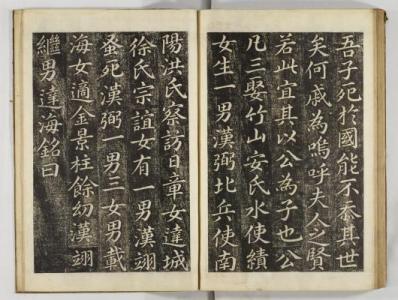 吾子死於國能不忝其世
矣何戚為嗚呼夫人之賢
若此宜其以公為子也公
凡三娶竹山安氏水使績
女生一男漢弼北兵使南
陽洪氏察訪日章女達城
徐氏宗誼女有一男漢翊
蚤死漢弼一男三女男載
海女適金景柱餘幼漢翊
繼男達海銘曰